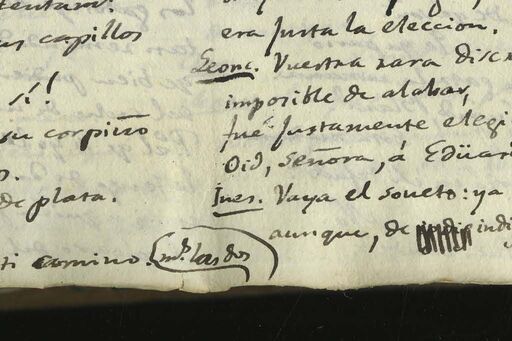 tentara!
us capillos
su corpiño
s.
de plata.
ti comino. las dos
era Justa la eleccion.
Leonc. Vuestra rara discr
imposible de alabar,
fué Justamente elegi
Oid, señora, á Eduar
Ines. Vaya el soneto: ya
aunque, de indi